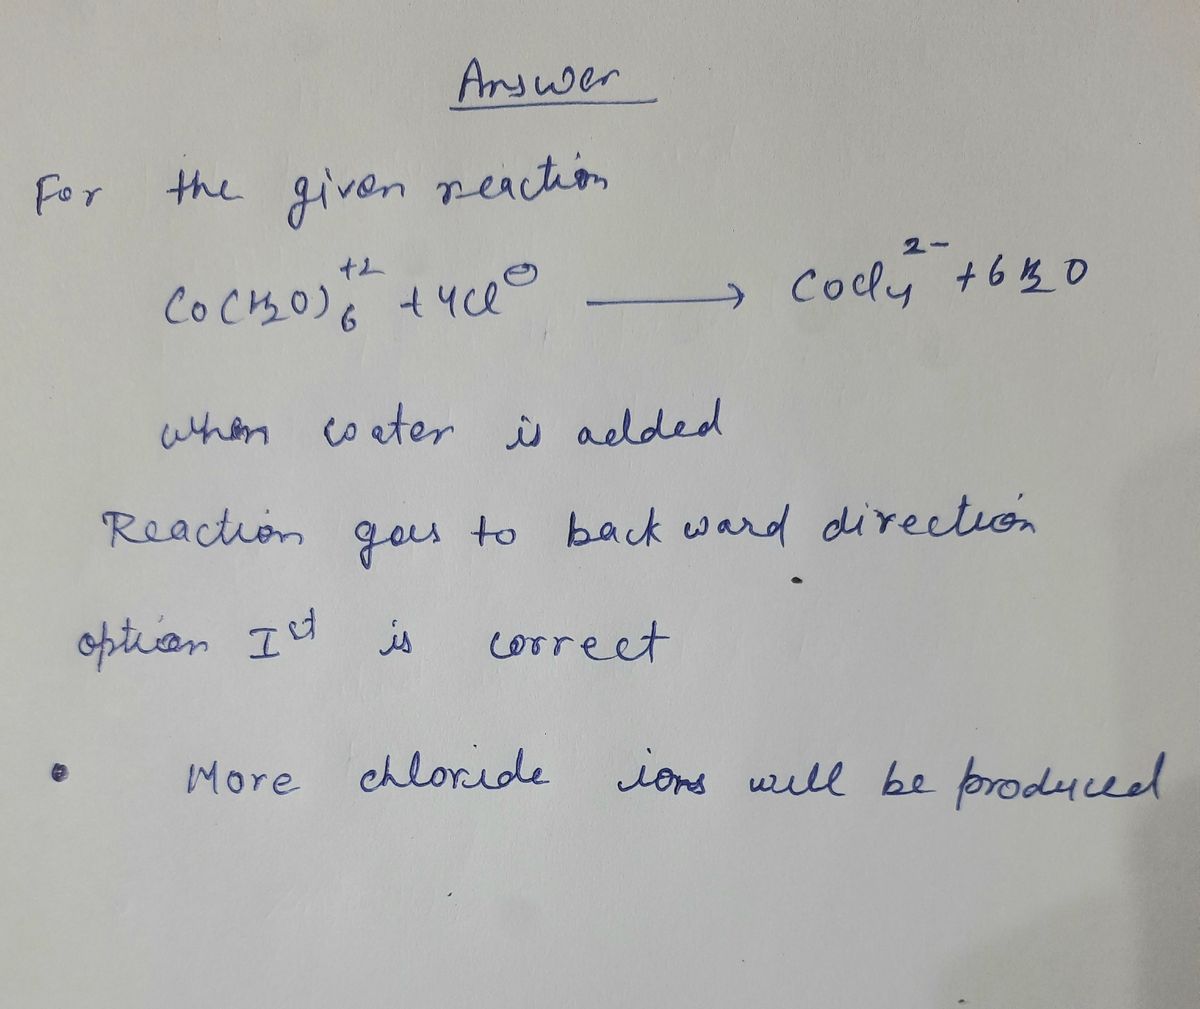 Answer
For the given reaction
Co(H2O)6+2 + 4Cl⊖ → CoCl4 2- + 6H2O
when water is added
Reaction goes to backward direction
option Ist is correct
• More chloride ions will be produced